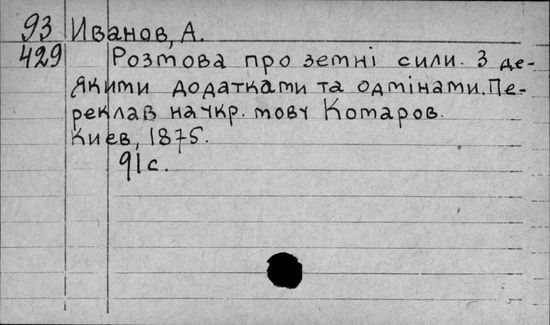 93 Иванов, А.
429 Розмова про земні сили. З де-
якими додатками та одмінами. Пе-
реклав на укр. мову Комаров.
Киев, 1875.
91 с.